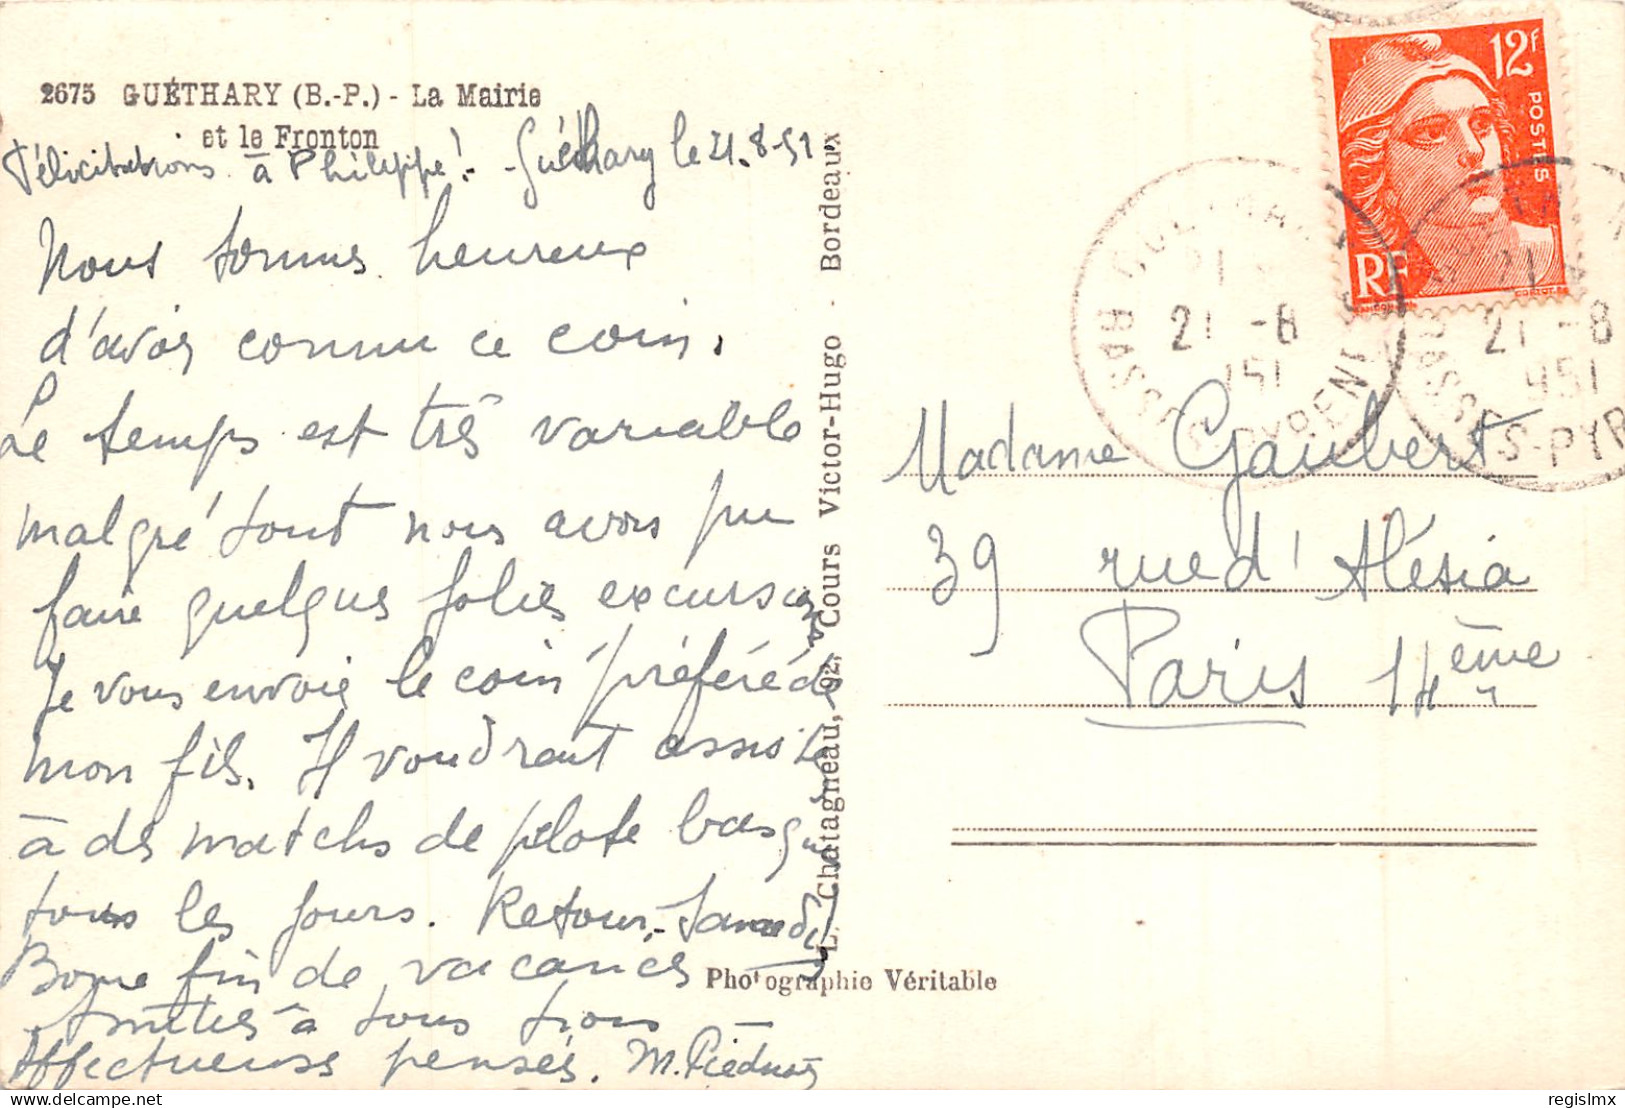 2675 GUÉTHARY (B.-P.) - La Mairie
et le Fronton
Félicitations à Philippe! - Guéthary le 21.8.51.
Nous sommes heureux
d'avoir connu ce coin.
Le temps est très variable
malgré tout nous avons pu
faire quelques jolies excursions
Je vous envoie le coin préféré de
mon fils. Il voudrait assister
à des matchs de pelote basque
tous les jours. Retour - Samedi
Bonne fin de vacances
Amitiés à tous trois
Affectueuses pensées. M.
L. Chatagneau, 92, Cours Victor-Hugo - Bordeaux
Photographie Véritable
12F
POSTES
RF
21 -8
951
BASSES-PYRENE
21
21 -8
951
Madame Gaubert
39 rue d'Alésia
Paris 14ème
regislmx